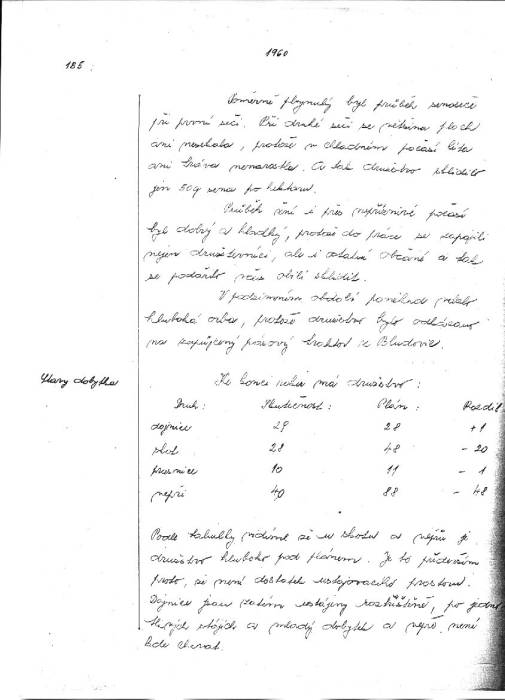 1960
185
Poměrně plynulý byl průběh senoseče
při první seči. Při druhé seči se většina ploch
ani nesekala, protože v chladném počasí léta
ani tráva nenarostla. A tak družstvo sklidilo
jen 50q sena po hektaru.
Průběh žní i přes nepříznivé počasí
byl dobrý a hladký, protože do práce se zapojili
nejen družstevníci, ale i ostatní občané a tak
se podařilo včas obilí sklidit.
V podzimním období poněkud vázla
hluboká orba, protože družstvo bylo odkázáno
na zapůjčený pásový traktor z Bludovic.
Stavy dobytka
Ke konci roku má družstvo:
Druh: Skutečnost: Plán: Rozdíl
dojnice 29 28 +1
skot 28 48 - 20
prasnice 10 11 - 1
vepři 40 88 - 48
Podle tabulky vidíme že u skotu a vepřů je
družstvo hluboko pod plánem. Je to především
proto, že není dostatek ustajovacího prostoru.
Dojnice jsou zatím ustájeny roztříštěně, po jednot
livých stájích a mladý dobytek a vepře není
kde chovat.